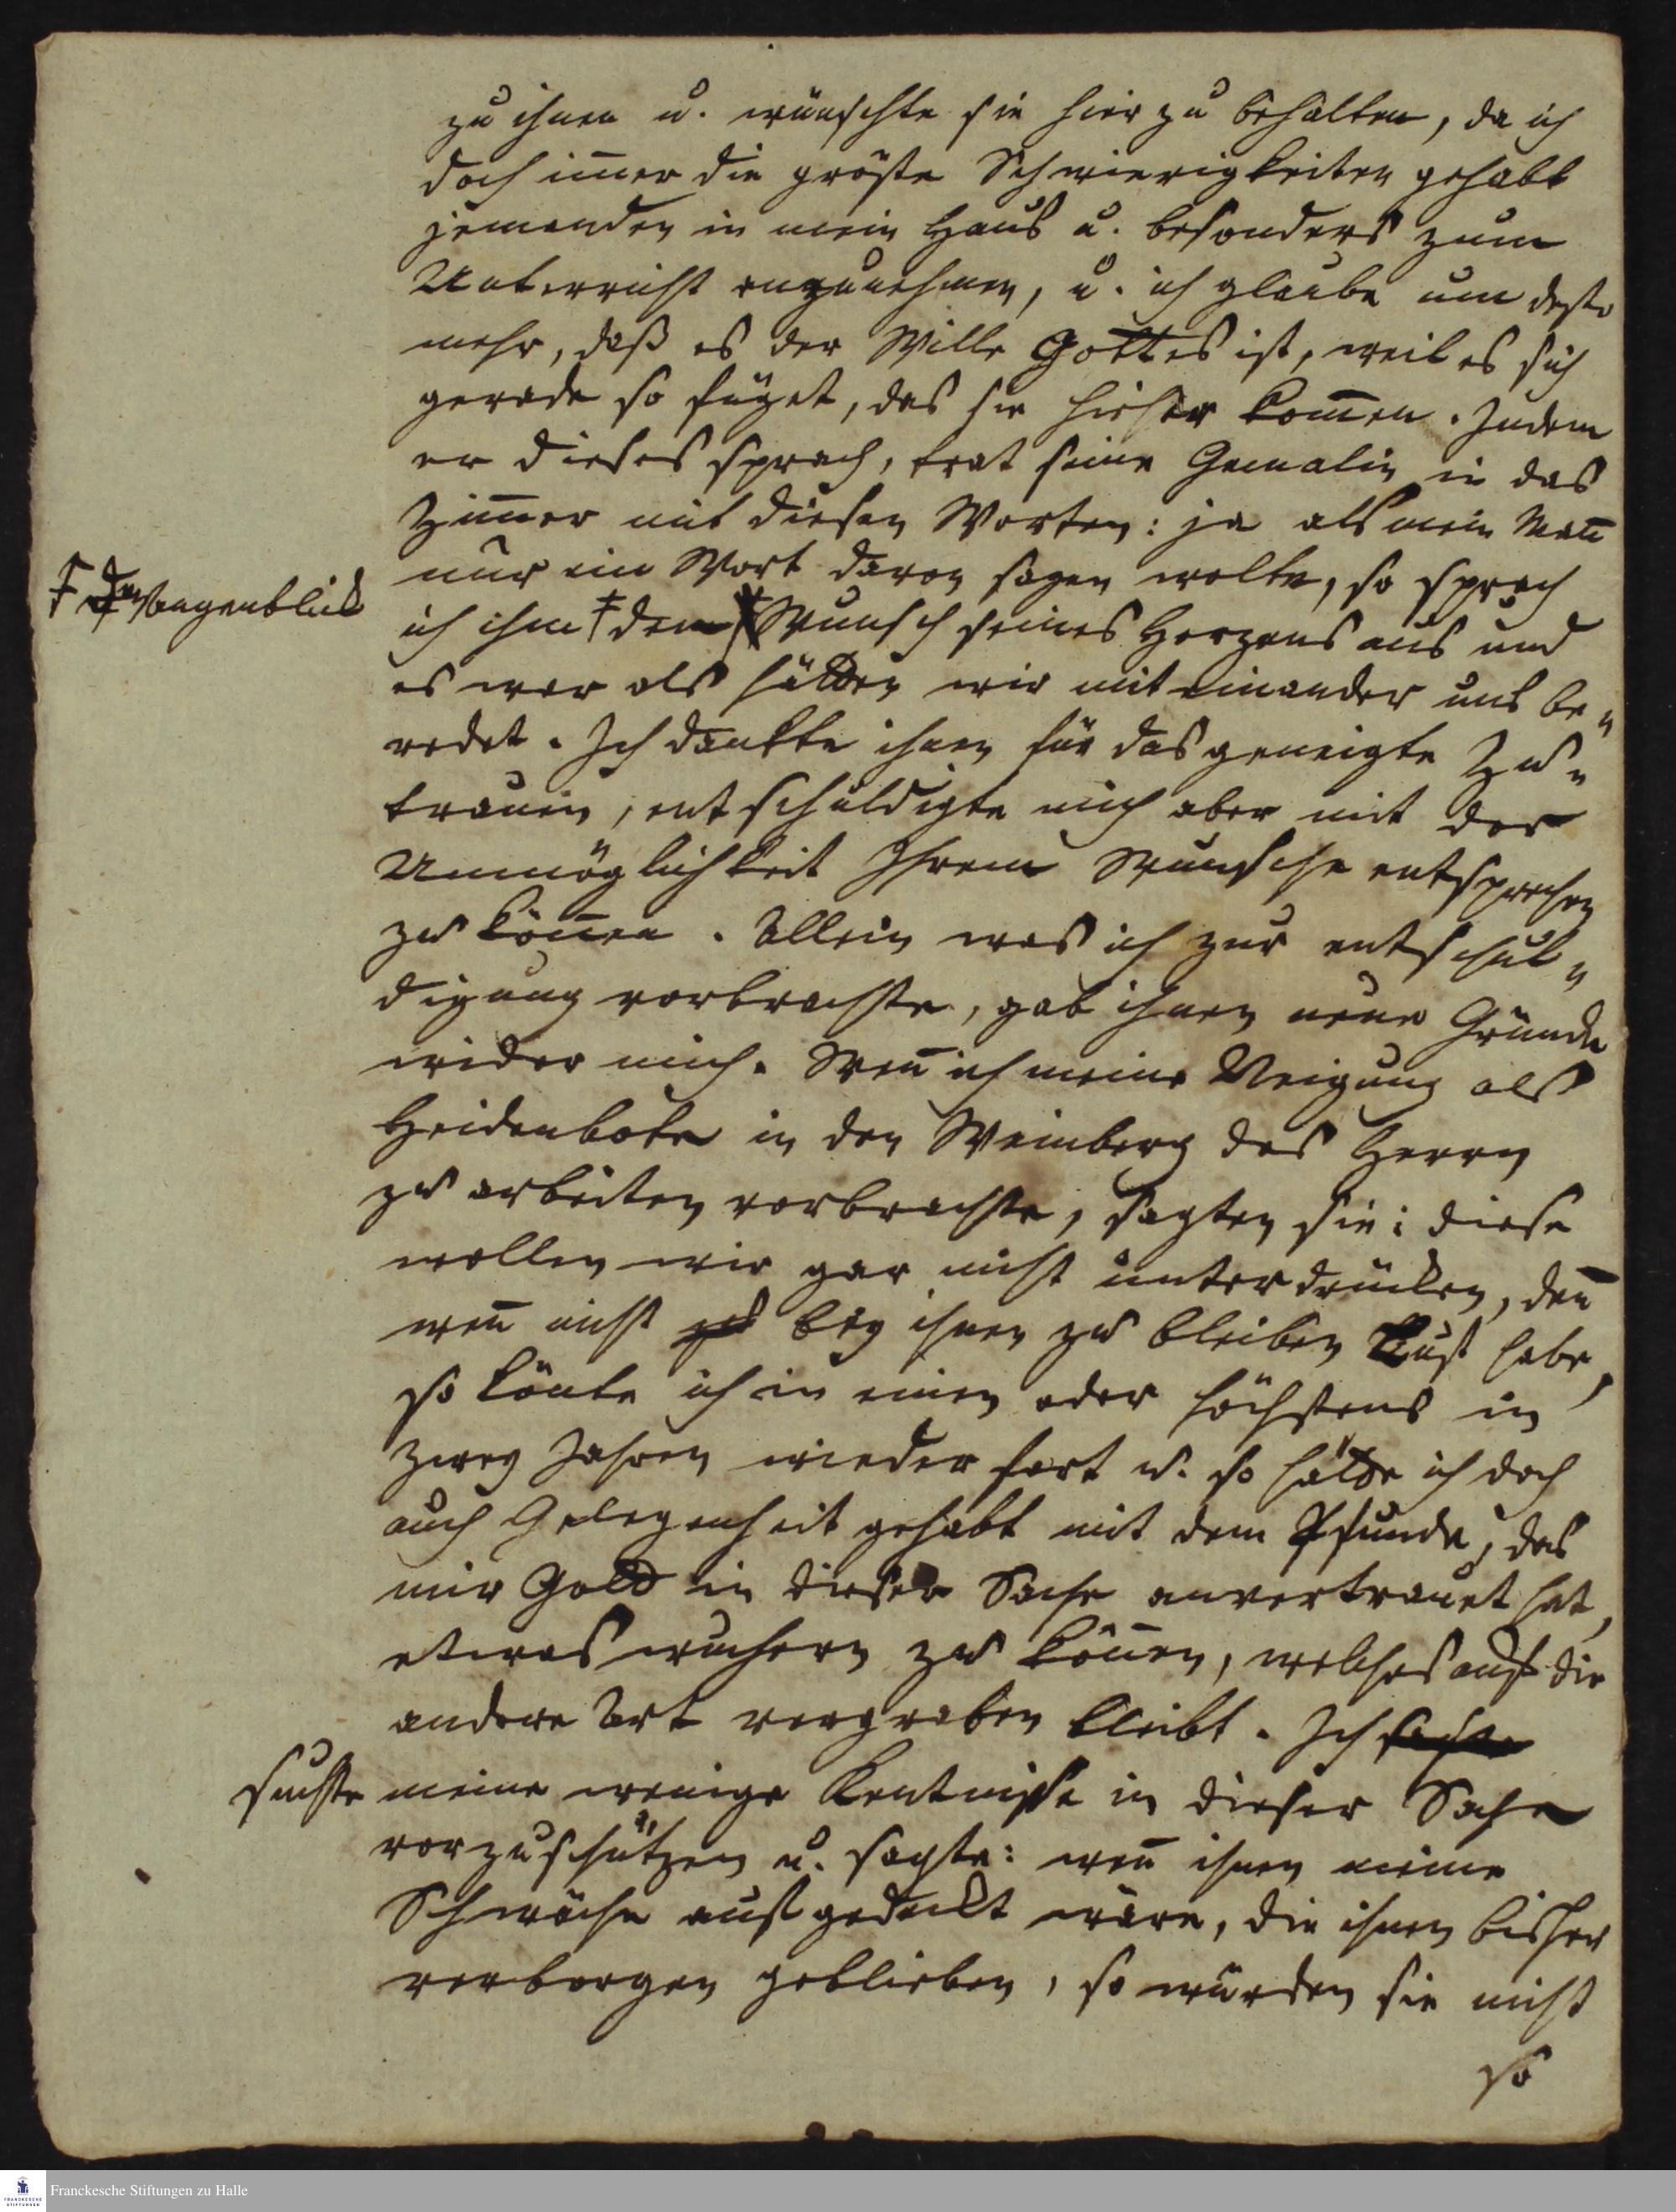 zu ihnen u. wünschte sie hier zu behalten, da ich
doch im̄er die gröste Schwierigkeiten gehabt
jemanden in mein Haus u. besonders zum
Unterricht anzunehmen, u. ich glaube um desto
mehr, daß es der Wille Gottes ist, weil es sich
gerade so füget, das sie hieher kom̄en. Indem
er dieses sprach, trat seine Gemalin in das
Zim̄er mit diesen Worten: ja als mein Man̄
nur ein Wort davon sagen wolte, so sprach
‡ den Augenblick
ich ihm ‡ den Wunsch seines Herzens aus und
es war als hätten wir mit einander uns be"
redet. Ich dankte ihnen für das geneigte Zu"
trauen, entschuldigte mich aber mit der
Unmöglichkeit Ihrem Wunsche entsprechen
zu kön̄en. Allein was ich zur entschul"
digung vorbrachte, gab ihnen neue Gründe
wider mich. Wen̄ ich meine Neigung als
Heidenbote in den Weinberg des Herrn
zu arbeiten vorbrachte, sagten sie: diese
wollen wir gar nicht unterdrücken, den̄
wen̄ nicht zu bey ihnen zu bleiben Lust habe,
so könte ich in einen oder höchstens in
zwey Jahren wieder fort u. so hätte ich doch
auch Gelegenheit gehabt mit dem Pfunde, das
mir Gott in dieser Sache anvertrauet hat,
etwas wuchern zu kön̄en, welches auf die
andere Art vergraben bleibt. Ich
suchte meine wenige Kentnisse in dieser Sache
vorzuschützen u. sagte: wen̄ ihnen meine
Schwäche aufgedeckt wäre, die ihnen bisher
verborgen geblieben, so würden sie nicht
so
Franckesche Stiftungen zu Halle